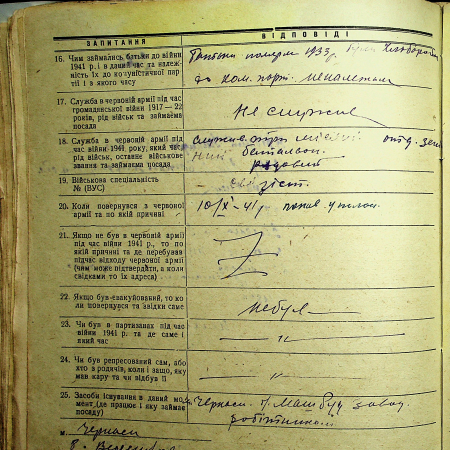 ЗАПИТАННЯ
ВІДПОВІДІ
16. Чим займались батьки до війни
1941 р. і в даний час та належ-
ність їх до комуністичної пар-
тії і з якого часу
померли 1933 р. були хлібороби
до ком. парт. неналежали
17. Служба в червоній армії під час
громадянської війни 1917—22
років, рід військ та займаєма
посада
Не служив
18. Служба в червоній армії під
час війни 1941 року, який час,
рід військ, останнє військове
звання та займаєма посада
служив
батальон
рядовий
19. Військова спеціальність
№ (ВУС)
20. Коли повернувся з червоної
армії та по якій причині
10/X-41 р
21. Якщо не був в червоній армії
під час війни 1941 р., то по
якій причині та де перебував
під час відходу червоної армії
(чим може підтвердити, а коли
свідками то їх адреса)
22. Якщо був евакуйований, то ко-
ли повернувся та звідки саме
не був
23. Чи був в партизанах під час
війни 1941 р. та де саме і
який час
— " —
24. Чи був репресований сам, або
хто з родичів, коли і защо, яку
мав кару та чи відбув її
— " —
25. Засоби існування в даний мо-
мент (де працює і яку займає
посаду)
м. Черкаси Машбуд завод
робітником
м. Черкаси